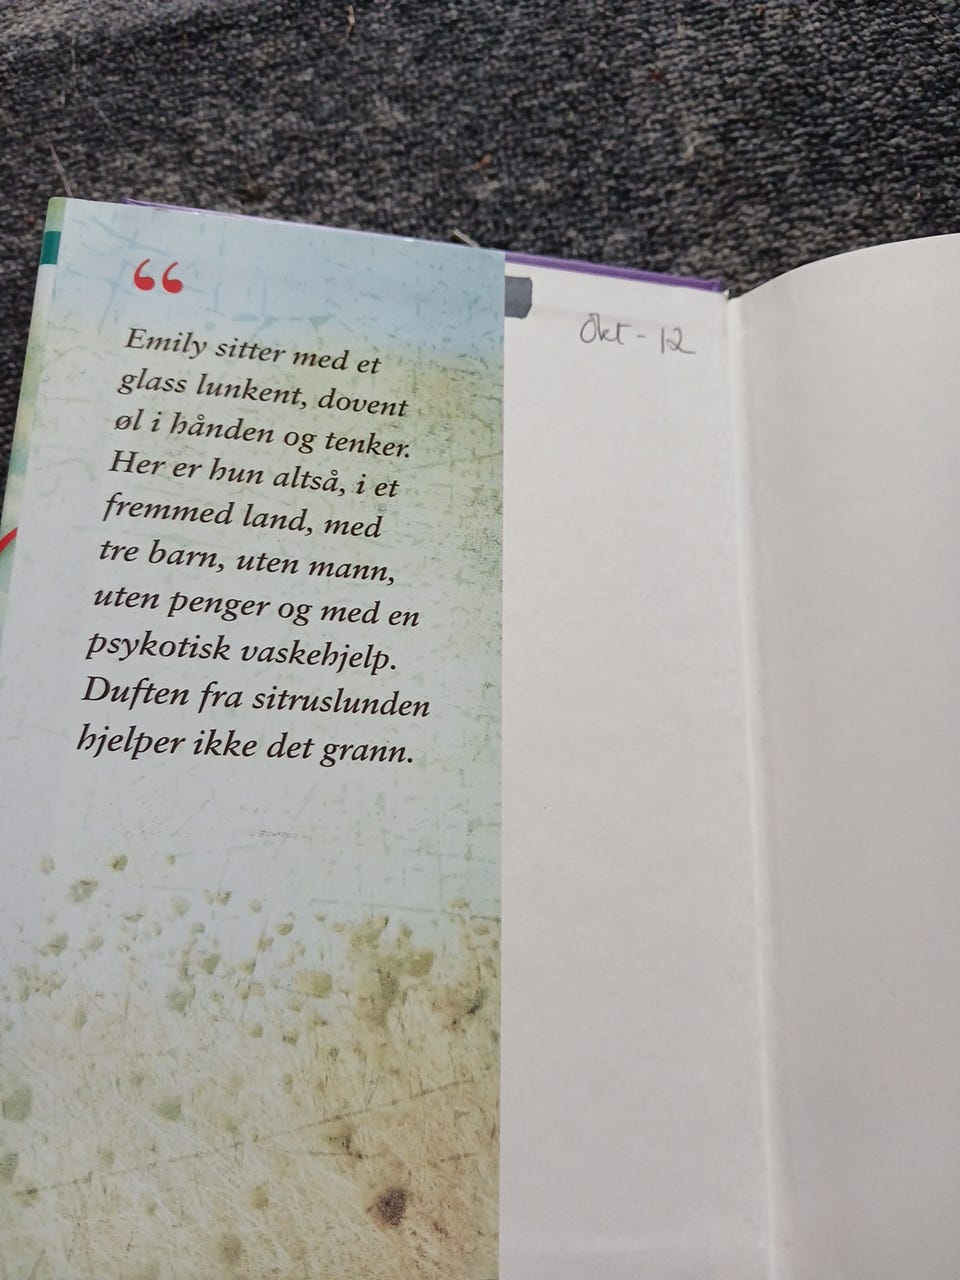 “
Emily sitter med et
glass lunkent, dovent
øl i hånden og tenker.
Her er hun altså, i et
fremmed land, med
tre barn, uten mann,
uten penger og med en
psykotisk vaskehjelp.
Duften fra sitruslunden
hjelper ikke det grann.
Okt - 12